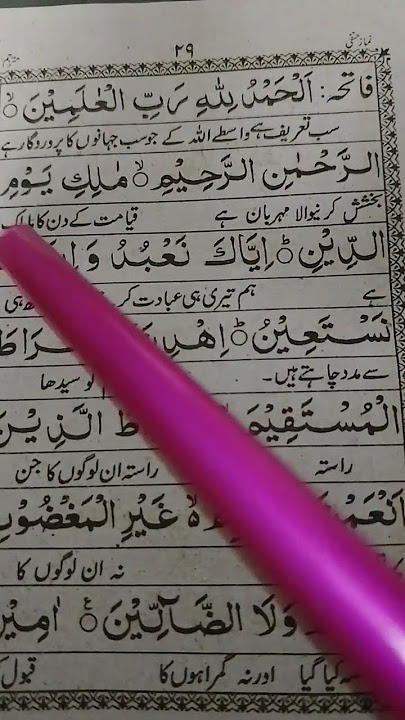 نماز حنفی ۲۹ مترجم
فاتحہ: اَلْحَمْدُ لِلّٰهِ رَبِّ الْعٰلَمِيْنَ ۙ
سب تعریف ہے واسطے اللہ کے جو سب جہانوں کا پروردگار ہے
الرَّحْمٰنِ الرَّحِيْمِ ۙ مٰلِكِ يَوْمِ
بخشش کرنیوالا مہربان ہے قیامت کے دن کا مالک
الدِّيْنِ ؕ اِيَّاكَ نَعْبُدُ وَ
ہے ہم تیری ہی عبادت ہی
نَسْتَعِيْنُ ؕ اِهْدِ
سے مدد چاہتے ہیں۔ سیدھا
الْمُسْتَقِيْمَ الَّذِيْنَ
راستہ راستہ ان لوگوں کا جن
غَيْرِ الْمَغْضُوْبِ
نہ ان لوگوں کا
وَلَا الضَّآلِّيْنَ ۧ اٰمِيْن
کیا گیا اور نہ گمراہوں کا قبول